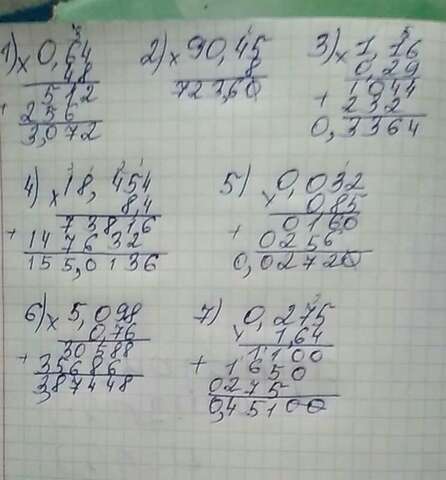 1) × 0,64
4,8
512
+ 256
3,072
2) × 90,45
8
723,60
3) × 1,16
0,29
1044
+ 232
0,3364
4) × 18,454
8,4
73816
+ 147632
155,0136
5) × 0,032
0,85
0160
+ 0256
0,02720
6) × 5,098
0,76
30588
+ 35686
3,87448
7) × 0,275
1,64
1100
+ 1650
0275
0,45100